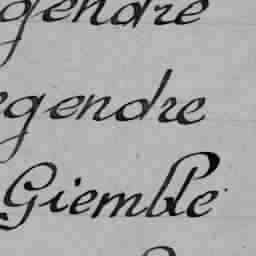 gendre
egendre
Giemble